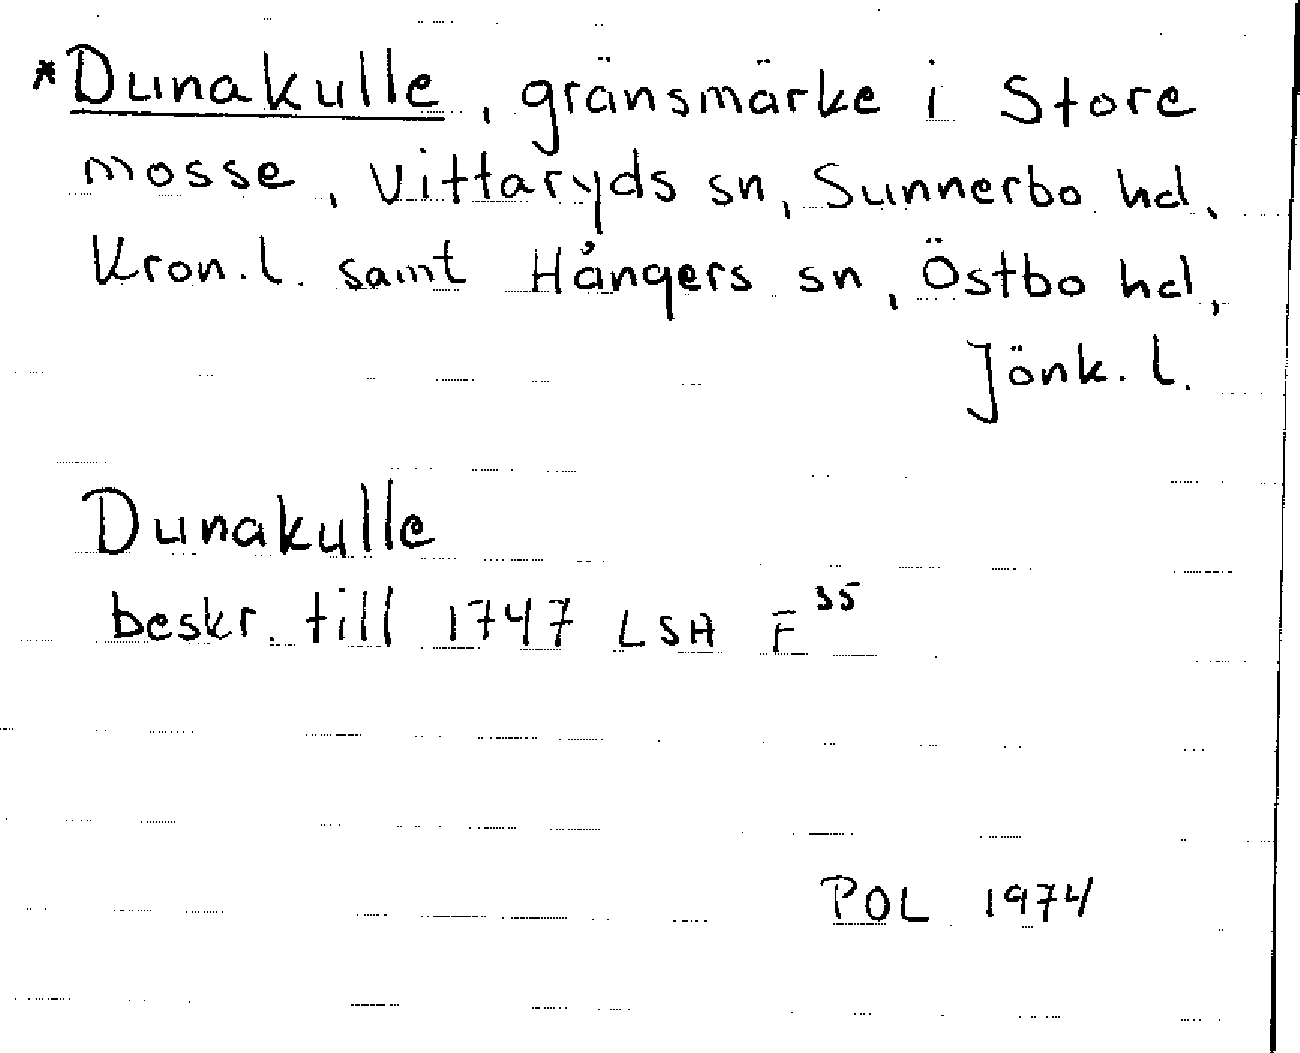 *Dunakulle, gränsmärke i Store
mosse, Vittaryds sn, Sunnerbo hd,
Kron.l. samt Hångers sn, Östbo hd,
Jönk. l.
Dunakulle
beskr. till 1747 LSH F35
POL 1974